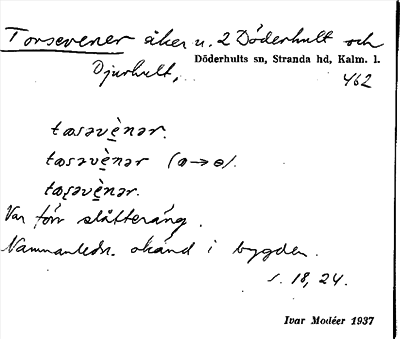 Torsevener åker u. 2 Döderhult och
Djurhult,
Döderhults sn, Stranda hd, Kalm. l.
462
tæsəvè̱nər.
tæsəvè̱nər (æ→ɵ).
tæʂəvè̱nər.
Var förr slåtteräng.
Namnanledn. okänd i bygden.
s. 18, 24.
Ivar Modéer 1937